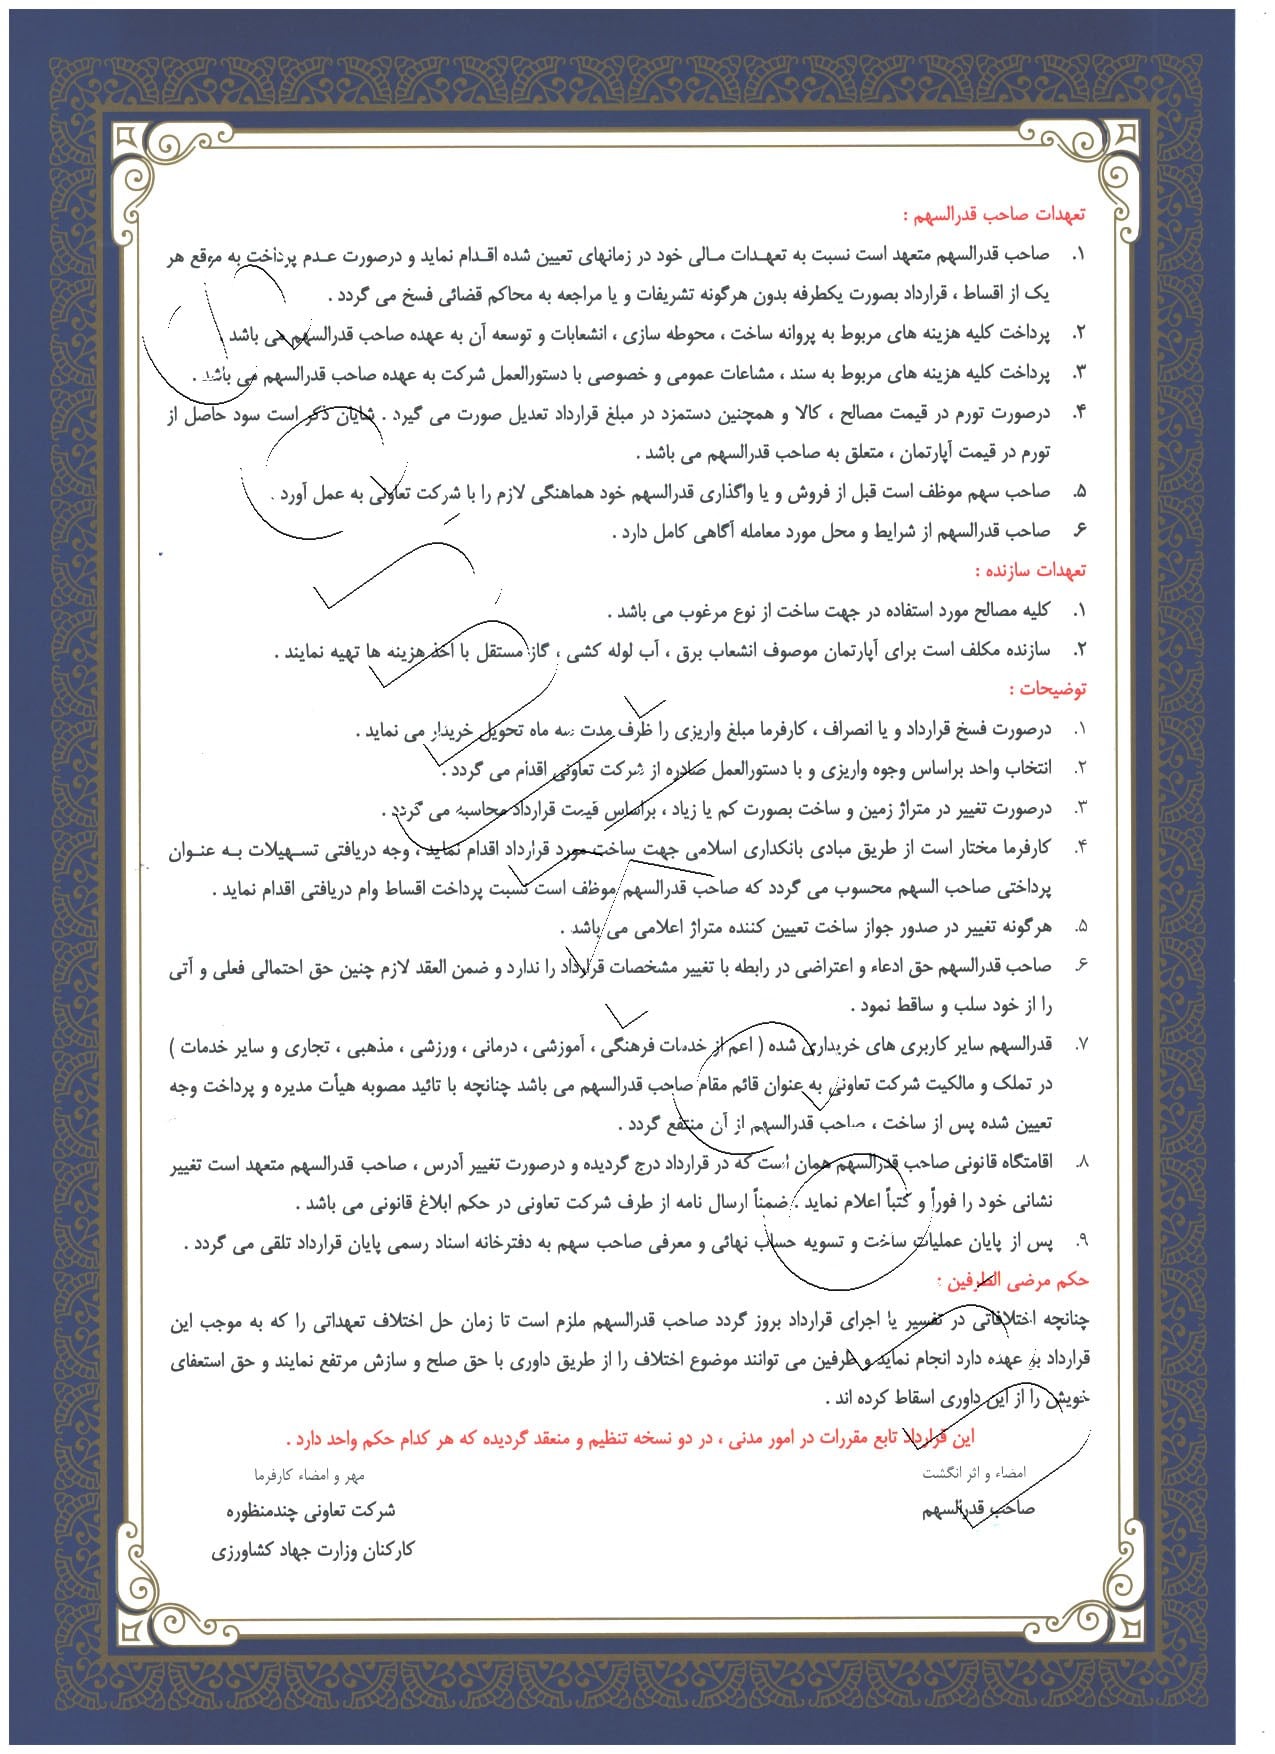 تعهدات صاحب قدرالسهم :
۱. صاحب قدرالسهم متعهد است نسبت به تعهـدات مـالی خود در زمانهای تعیین شده اقـدام نماید و درصورت عـدم پرداخت به موقع هر
یک از اقساط ، قرارداد بصورت یکطرفه بدون هرگونه تشریفات و یا مراجعه به محاکم قضائی فسخ می گردد .
۲. پرداخت کلیه هزینه های مربوط به پروانه ساخت ، محوطه سازی ، انشعابات و توسعه آن به عهده صاحب قدرالسهم می باشد .
۳. پرداخت کلیه هزینه های مربوط به سند ، مشاعات عمومی و خصوصی با دستورالعمل شرکت به عهده صاحب قدرالسهم می باشد .
۴. درصورت تورم در قیمت مصالح ، کالا و همچنین دستمزد در مبلغ قرارداد تعدیل صورت می گیرد . شایان ذکر است سود حاصل از
تورم در قیمت آپارتمان ، متعلق به صاحب قدرالسهم می باشد .
۵. صاحب سهم موظف است قبل از فروش و یا واگذاری قدرالسهم خود هماهنگی لازم را با شرکت تعاونی به عمل آورد .
۶. صاحب قدرالسهم از شرایط و محل مورد معامله آگاهی کامل دارد .
تعهدات سازنده :
۱. کلیه مصالح مورد استفاده در جهت ساخت از نوع مرغوب می باشد .
۲. سازنده مکلف است برای آپارتمان موصوف انشعاب برق ، آب لوله کشی ، گاز مستقل با اخذ هزینه ها تهیه نمایند .
توضیحات :
۱. درصورت فسخ قرارداد و یا انصراف ، کارفرما مبلغ واریزی را ظرف مدت سه ماه تحویل خریدار می نماید .
۲. انتخاب واحد براساس وجوه واریزی و با دستورالعمل صادره از شرکت تعاونی اقدام می گردد .
۳. درصورت تغییر در متراژ زمین و ساخت بصورت کم یا زیاد ، براساس قیمت قرارداد محاسبه می گردد .
۴. کارفرما مختار است از طریق مبادی بانکداری اسلامی جهت ساخت مورد قرارداد اقدام نماید ، وجه دریافتی تسـهیلات بـه عنـوان
پرداختی صاحب السهم محسوب می گردد که صاحب قدرالسهم موظف است نسبت پرداخت اقساط وام دریافتی اقدام نماید .
۵. هرگونه تغییر در صدور جواز ساخت تعیین کننده متراژ اعلامی می باشد .
۶. صاحب قدرالسهم حق ادعاء و اعتراضی در رابطه با تغییر مشخصات قرارداد را ندارد و ضمن العقد لازم چنین حق احتمالی فعلی و آتی
را از خود سلب و ساقط نمود .
۷. قدرالسهم سایر کاربری های خریداری شده ( اعم از خدمات فرهنگی ، آموزشی ، درمانی ، ورزشی ، مذهبی ، تجاری و سایر خدمات )
در تملک و مالکیت شرکت تعاونی به عنوان قائم مقام صاحب قدرالسهم می باشد چنانچه با تائید مصوبه هیأت مدیره و پرداخت وجه
تعیین شده پس از ساخت ، صاحب قدرالسهم از آن منتفع گردد .
۸. اقامتگاه قانونی صاحب قدرالسهم همان است که در قرارداد درج گردیده و درصورت تغییر آدرس ، صاحب قدرالسهم متعهد است تغییر
نشانی خود را فوراً و کتباً اعلام نماید . ضمناً ارسال نامه از طرف شرکت تعاونی در حکم ابلاغ قانونی می باشد .
۹. پس از پایان عملیات ساخت و تسویه حساب نهائی و معرفی صاحب سهم به دفترخانه اسناد رسمی پایان قرارداد تلقی می گردد .
حکم مرضی الطرفین :
چنانچه اختلافاتی در تفسیر یا اجرای قرارداد بروز گردد صاحب قدرالسهم ملزم است تا زمان حل اختلاف تعهداتی را که به موجب این
قرارداد به عهده دارد انجام نماید و طرفین می توانند موضوع اختلاف را از طریق داوری با حق صلح و سازش مرتفع نمایند و حق استعفای
خویش را از این داوری اسقاط کرده اند .
این قرارداد تابع مقررات در امور مدنی ، در دو نسخه تنظیم و منعقد گردیده که هر کدام حکم واحد دارد .
امضاء و اثر انگشت
صاحب قدرالسهم
مهر و امضاء کارفرما
شرکت تعاونی چندمنظوره
کارکنان وزارت جهاد کشاورزی